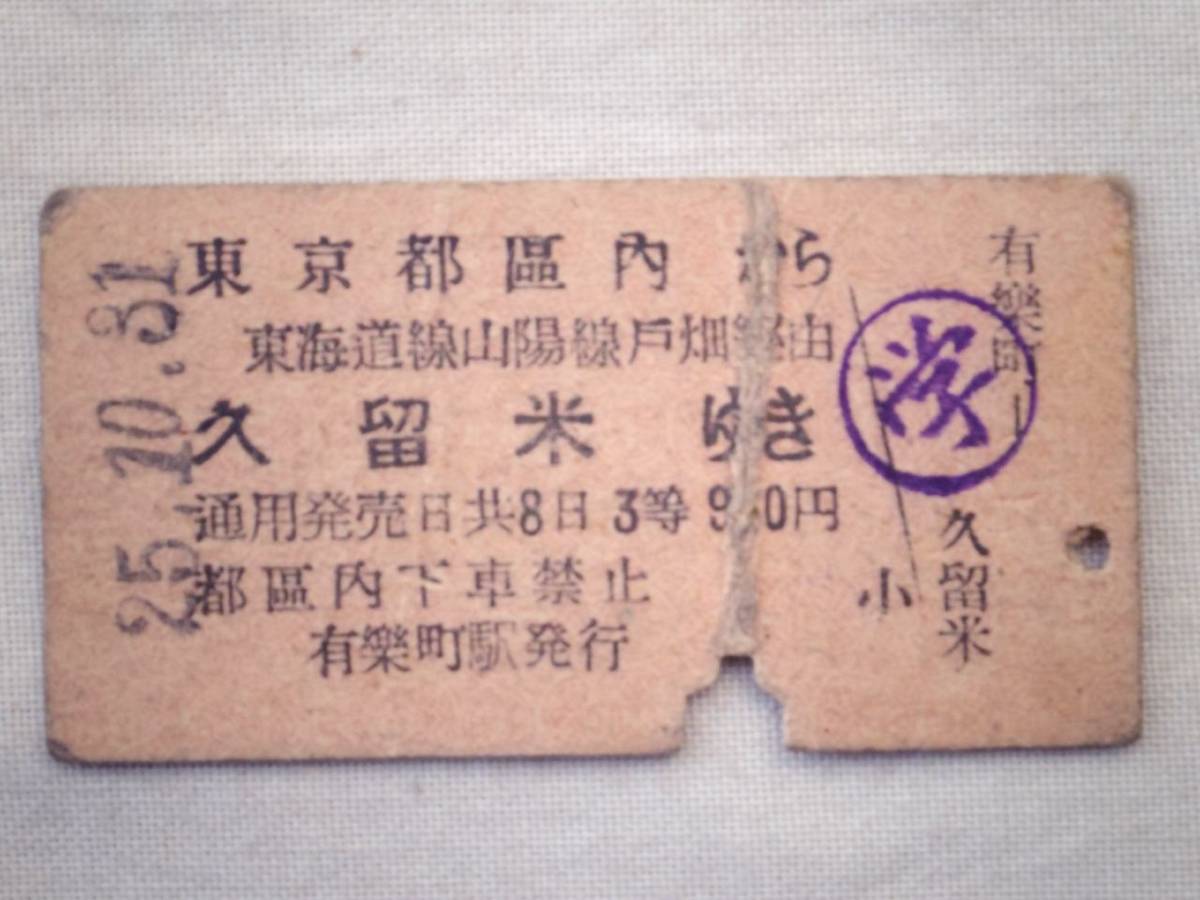 25.10.31
東京都區內から
東海道線山陽線戸畑経由
久留米ゆき
通用発売日共8日 3等 9 0円
都區内下車禁止
有樂町駅発行
有樂町
久留米
小